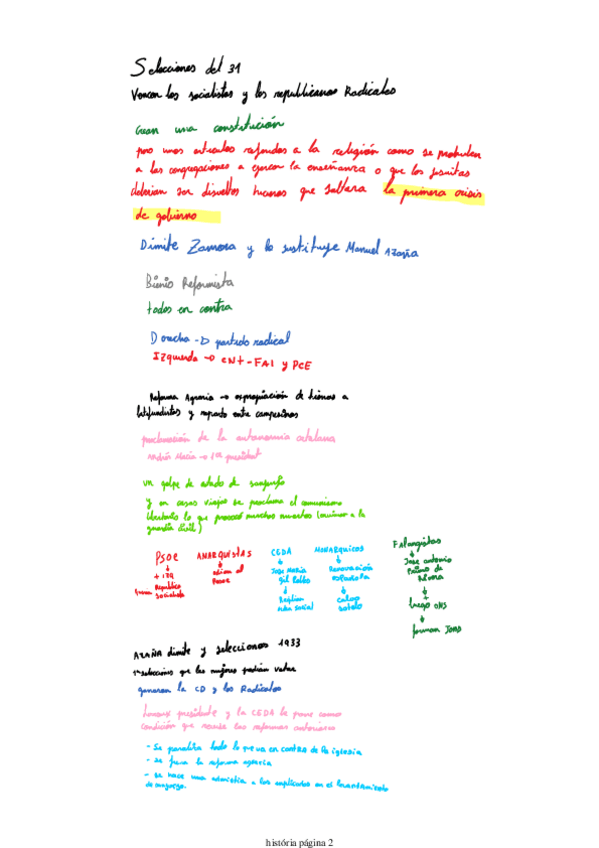 Selecciones del 31
Vencen los socialistas y los republicanos Radicales
Crean una constitución
pero unos articulos referidos a la religión como se prohiben
a las congregaciones a ejercer la enseñanza o que los jesuitas
deberian ser disueltos hacen que saltara la primera crisis
de gobierno
Dimite Zamora y lo sustituye Manuel Azaña
Bienio Reformista
todos en contra
Derecha → partido radical
Izquierda → CNT - FAI y PCE
Reforma Agraria → expropiación de tierras a
latifundistas y reparto entre campesinos
proclamación de la autonomia catalana
→ 1er president
un golpe de estado de sanjurjo
y en casas viejas se proclama el comunismo
libertario lo que provocó muchas muertes
guardia civil)
PSOE
+ izq
Republica
Socialista
ANARQUISTAS
PSOE
CEDA
Jose Maria
gil Robles
social
MONARQUICOS
Renovación
española
Calvo
sotelo
Falangistas
Jose antonio
Primo de
Rivera
luego ONS
forman JONS
AZAÑA dimite y selecciones 1933
1ª selecciones que las mujeres podian votar
ganaron la CD y los Radicales
presidente y la CEDA le pone como
condición que las reformas anteriores
- Se paraliza todo lo que va en contra de la iglesia
- se frena la reforma agraria
- se hace una admistia a los explicados en el levantamiento
de sanjurjo.
história página 2